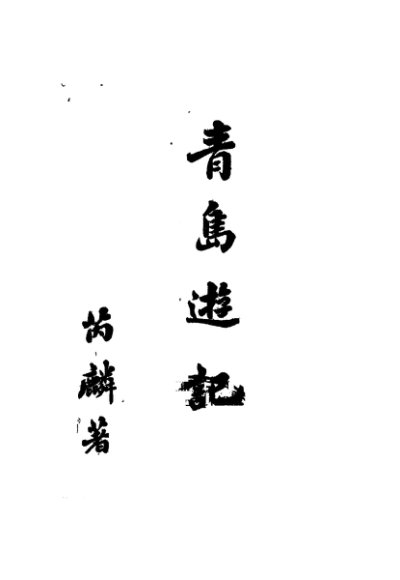 青島遊記
芮麟著